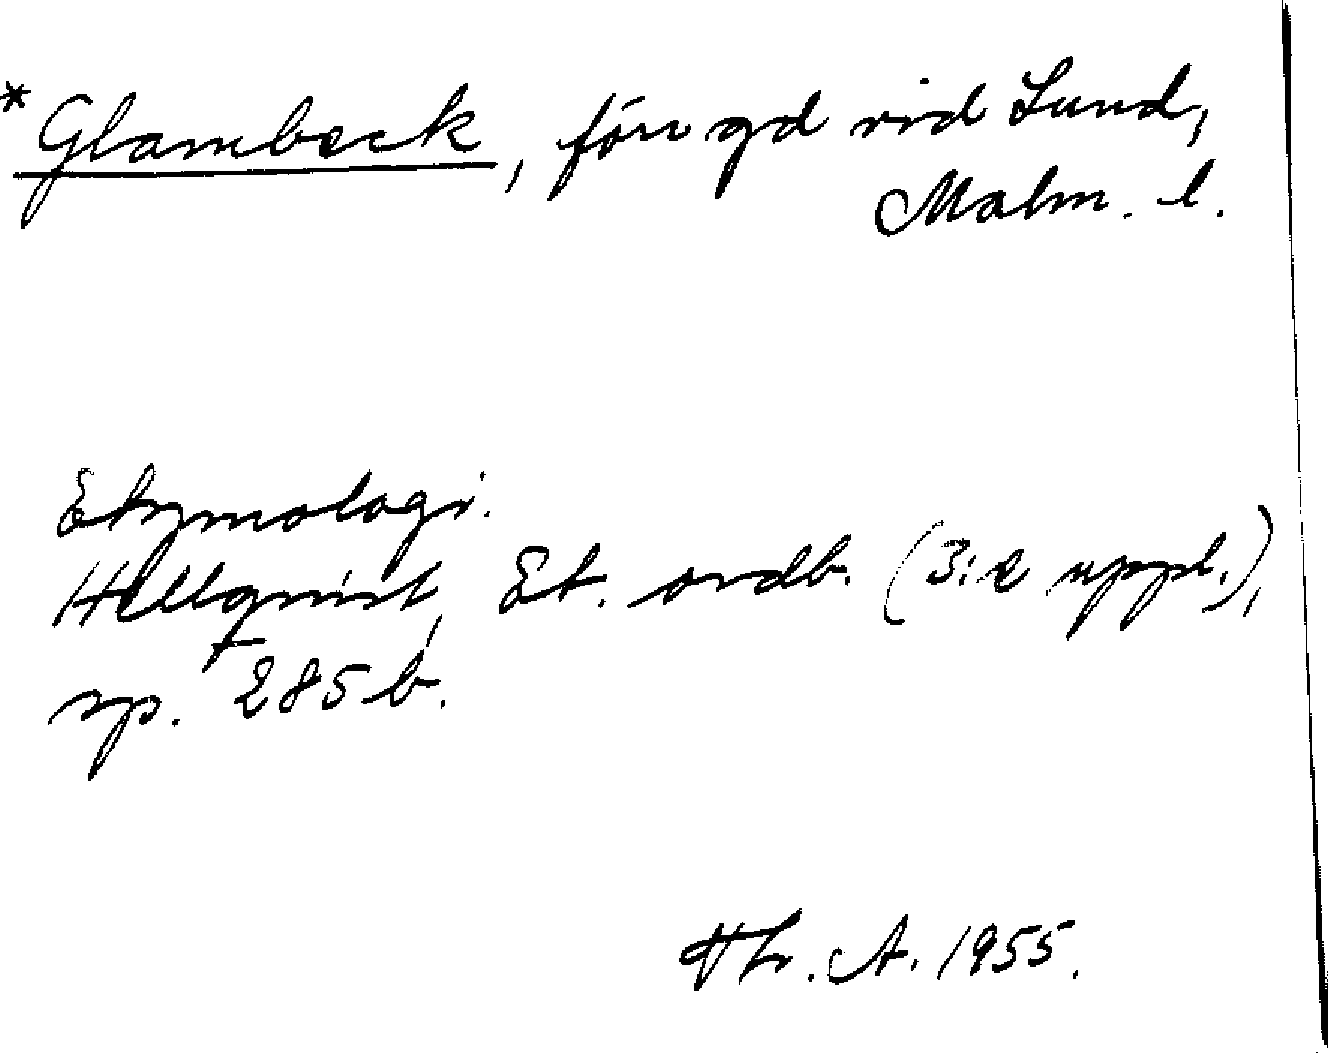 *Glambeck, förr gd vid Lund,
Malm. l.
Etymologi.
Hellquist, Et. ordb. (3:e uppl.),
sp. 285 b.
Hr. A. 1955.